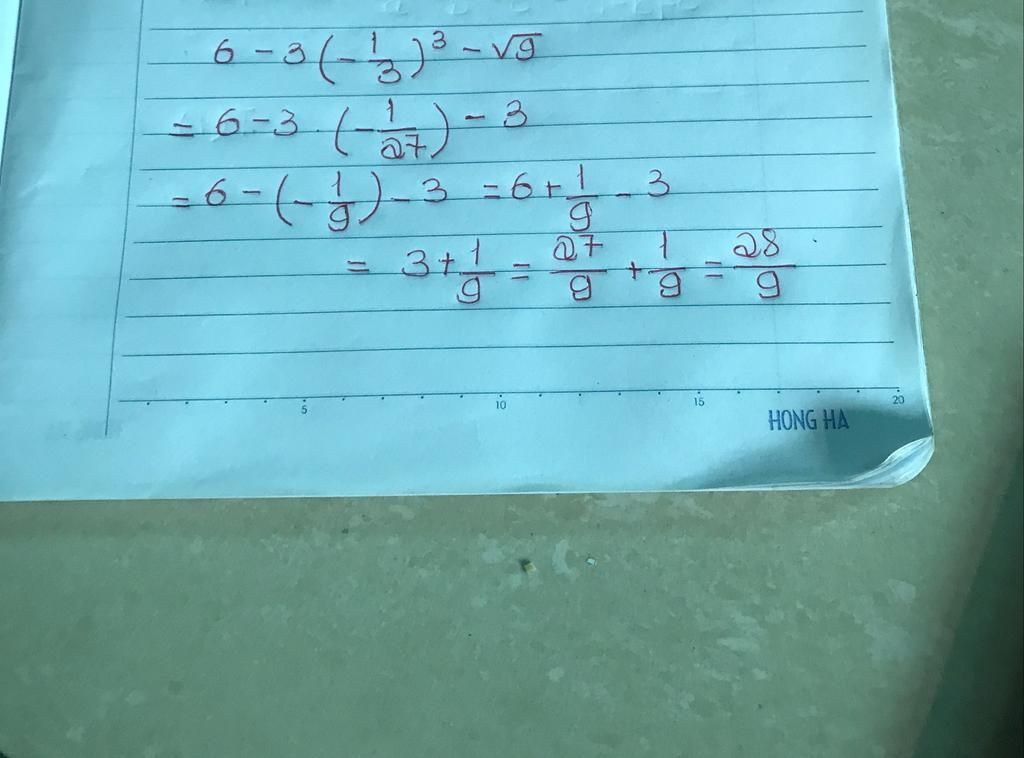 6 - 3 (-1/3)³ - √9
= 6 - 3 . (-1/27) - 3
= 6 - (-1/9) - 3 = 6 + 1/9 - 3
= 3 + 1/9 = 27/9 + 1/9 = 28/9
5 10 15 20
HONG HA